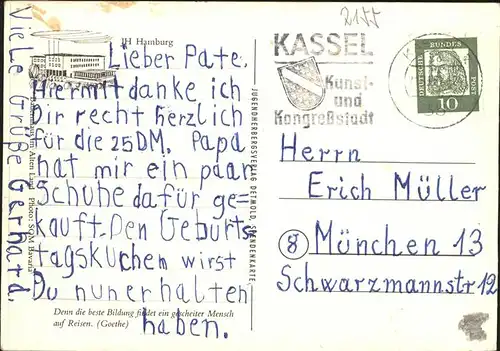 2155
JH Hamburg
Lieber Pate.
Hiermit danke ich
Dir recht herzlich
für die 25DM. Papa
hat mir ein paar
Schuhe dafür ge-
kauft. Den Geburts
tagskuchen wirst
Du nun erhalten
haben.
Viele Grüße Gerhard.
im Alten Land Photo: SCM Bavaria
Denn die beste Bildung findet ein gescheiter Mensch
auf Reisen. (Goethe)
JUGENDHERBERGSVERLAG DETMOLD
KASSEL
Kunst-
und
Kongreßstadt
DEUTSCHE BUNDES POST
10
Herrn
Erich Müller
8 München 13
Schwarzmannstr 12